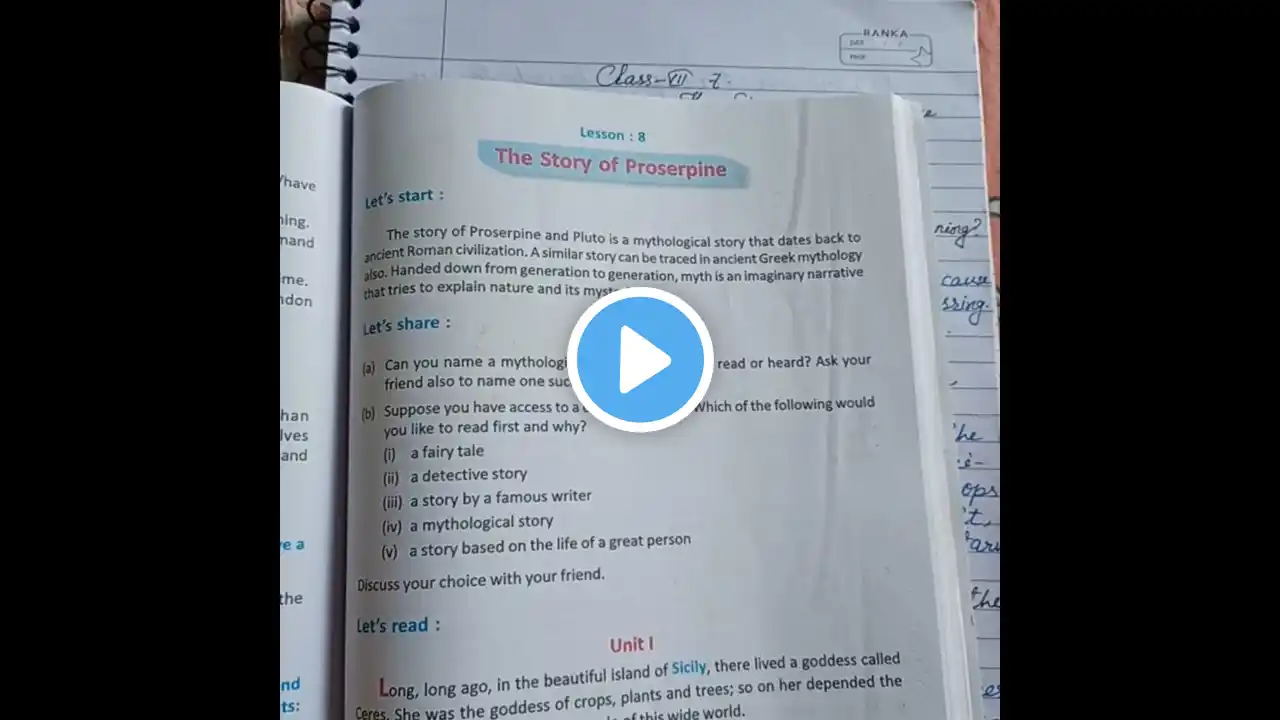 RANKA
DATE
PAGE
Class-VII 7.
Lesson : 8
The Story of Proserpine
Let's start :
The story of Proserpine and Pluto is a mythological story that dates back to
ancient Roman civilization. A similar story can be traced in ancient Greek mythology
also. Handed down from generation to generation, myth is an imaginary narrative
that tries to explain nature and its
Let's share :
(a) Can you name a read or heard? Ask your
friend also to name one
(b) Suppose you have access to a Which of the following would
you like to read first and why?
(i) a fairy tale
(ii) a detective story
(iii) a story by a famous writer
(iv) a mythological story
(v) a story based on the life of a great person
Discuss your choice with your friend.
Let's read :
Unit I
Long, long ago, in the beautiful island of Sicily, there lived a goddess called
Ceres. She was the goddess of crops, plants and trees; so on her depended the
of this wide world.
have
ing.
mand
me.
don
han
lves
and
e a
the
nd
ts:
ning?
cause
ssing.
he
ops
't,
the